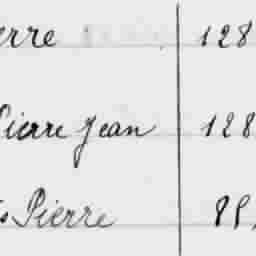 erre 128
Pierre Jean 128
s Pierre 85,